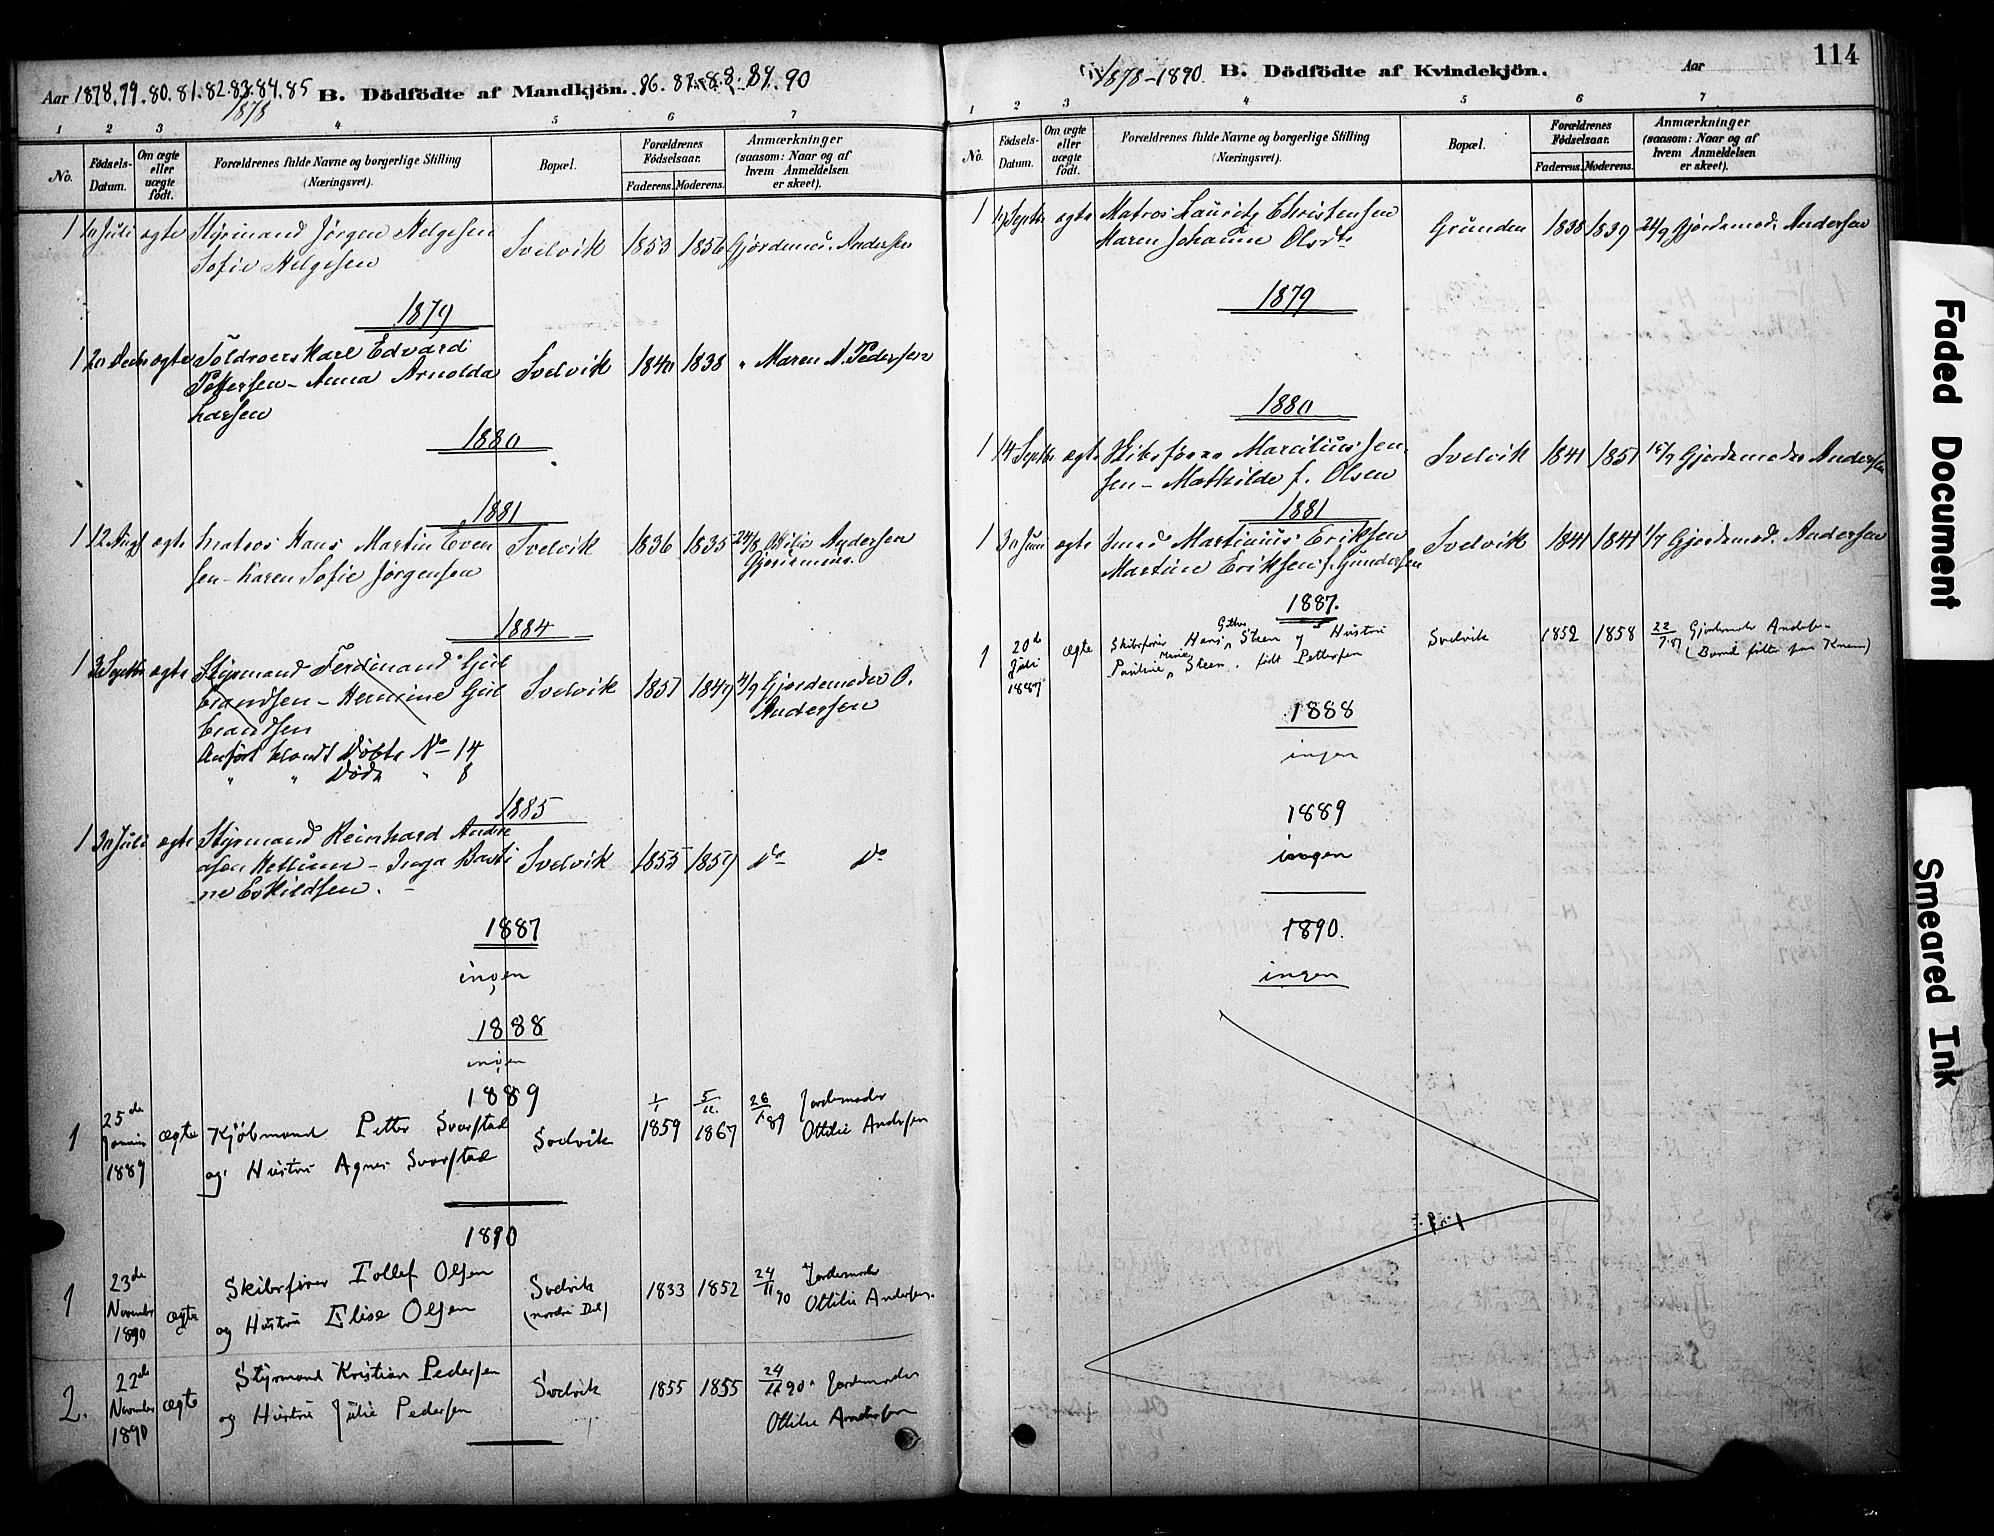 Aar 1878.79.80.81.82.83.84.85 B. Dödfödte af Mandkjön. 86.87.88.89.90
1878
1 2 3 4 5 6 7
No. Födsels-Datum. Om ægte eller uægte födt. Forældrenes fulde Navne og borgerlige Stilling (Næringsvei). Bopæl. Forældrenes Födselsaar. Faderens. Moderens. Anmærkninger (saasom: Naar og af hvem Anmeldelsen er skeet).
1 Juli ægte Styrmand Jörgen Helgesen Svelvik 1853 1856 Gjordemod. Andersen
Sofie Helgesen
1879
1 20 Decbr ægte Toldroers Karl Edvard Svelvik 1840 1838 " Maren N. Pedersen
Pettersen - Anna Arnolda
Larsen
1880
1881
1 12 Augs ægte Matros Hans Martin Even Svelvik 1836 1835 24/8 Ottilie Andersen
sen - Karen Sofie Jörgensen Gjordemoder
1884
1 3 Septbr ægte Styrmand Ferdinand Gul
brandsen - Hermine Gul Svelvik 1857 1849 4/9 Gjordemoder O.
brandsen Andersen
Anfört blandt Döbte No 14
" " Döde " 8
1885
1 30 Juli ægte Styrmand Reinhard Andre
asen Hellum - Inga Basti Svelvik 1855 1857 Do Do
ne Eskildsen.
1887
ingen
1888
ingen
1889
1 25de Januar 1889 ægte Kjöbmand Petter Svarstad Svelvik 1/1 1859 5/11 1867 26/1 89 Jordemoder
og Hustru Agnes Svarstad Ottilie Andersen
1890
1 23de November 1890 ægte Skibsfører Tollef Olsen Svelvik 1833 1852 24/11 90 Jordemoder
og Hustru Elise Olsen (nordre Del) Ottilie Andersen.
2. 22de November 1890 ægte Styrmand Kristian Pedersen Svelvik 1855 1855 24/11 90 Jordemoder
og Hustru Julie Pedersen Ottilie Andersen
1878-1890. B. Dödfödte af Kvindekjön. Aar 114
1 2 3 4 5 6 7
No. Födsels-Datum. Om ægte eller uægte födt. Forældrenes fulde Navne og borgerlige Stilling (Næringsvei). Bopæl. Forældrenes Födselsaar. Faderens. Moderens. Anmærkninger (saasom: Naar og af hvem Anmeldelsen er skeet).
1 Septbr ægte Matros Lauritz Christensen Grunden 1838 1839 24/9 Gjordemod. Andersen
Maren Johanne Olsdtr
1879
1880
1 14 Septbr ægte Skibsförer Marcilius Jen Svelvik 1841 1851 15/9 Gjordemoder Andersen
sen - Mathilde f. Olsen
1881
1 30 Juni ægte Smed Martinius Eriksen Svelvik 1841 1841 1/7 Gjordemod. Andersen
Martine Eriksen f. Gundersen
1887.
1 20de Juli 1887 ægte Skibsfører Hans Steen og Hustru Svelvik 1852 1858 22/7.87 Gjordemoder Andersen
Pauline Marie Steen. født Pettersen
1888
ingen
1889
ingen
1890.
ingen
Faded Document
Smeared Ink